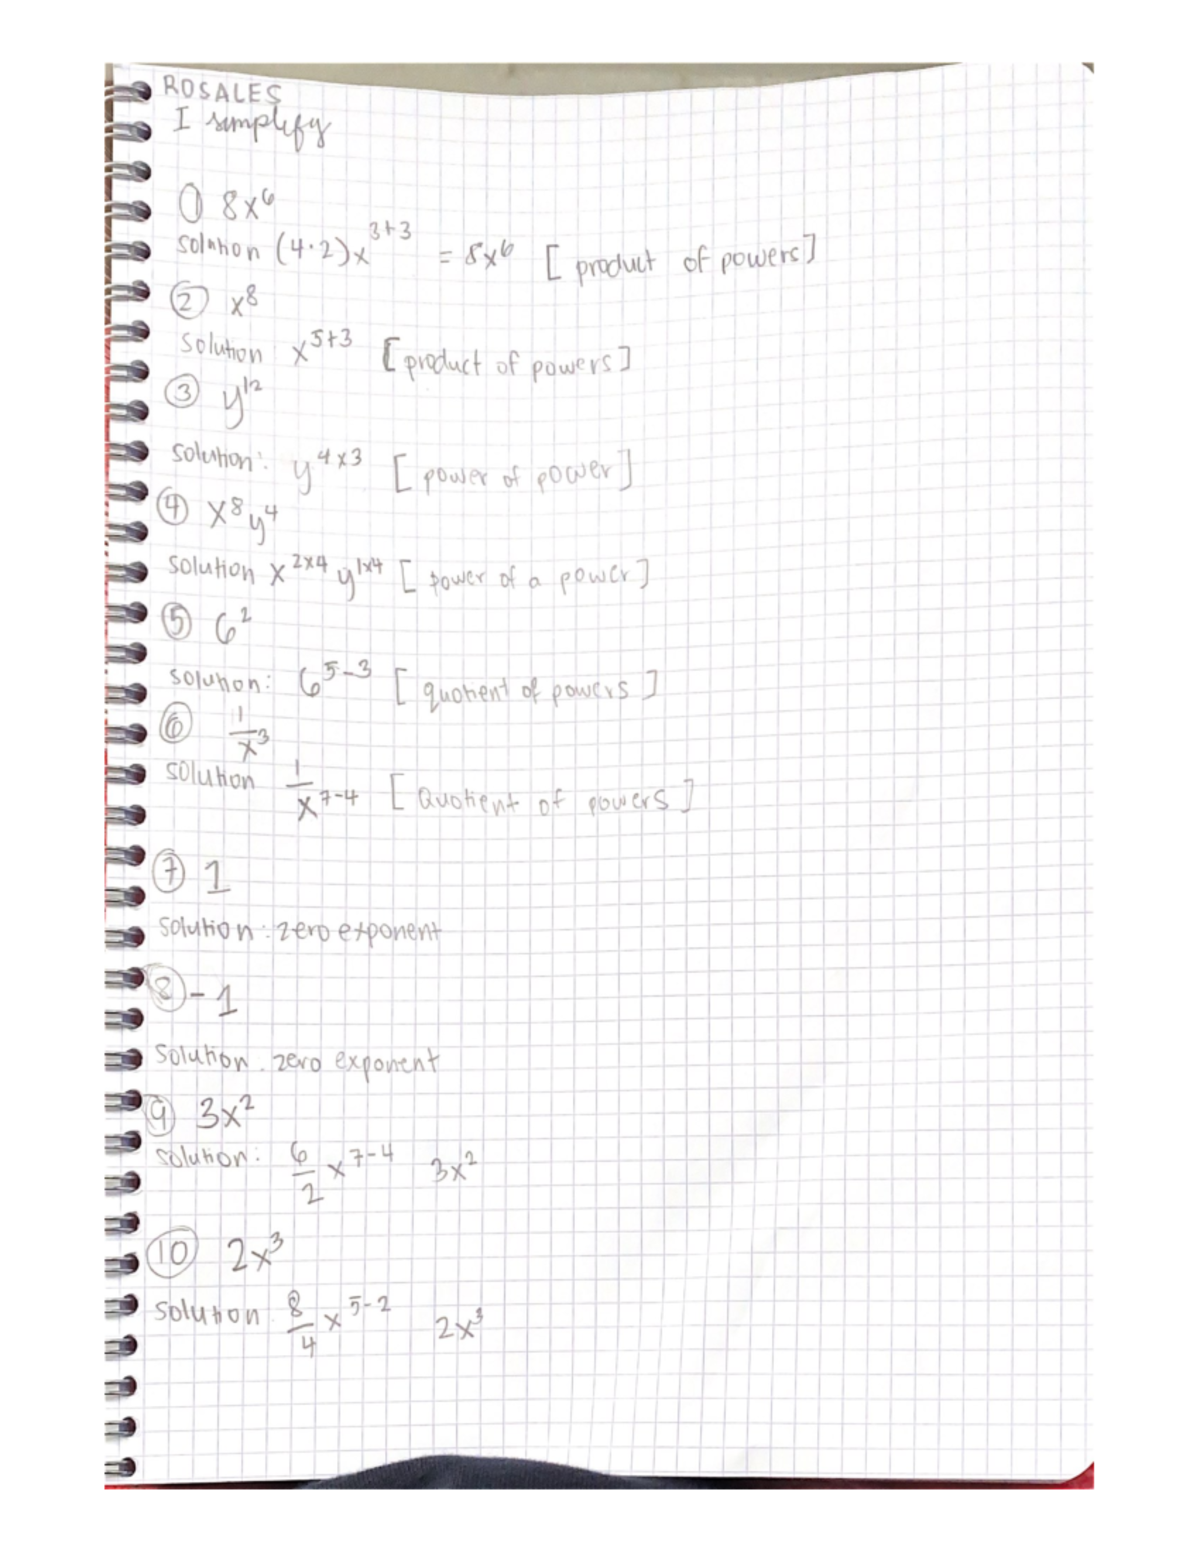 ROSALES
I simplify
① 8x⁶
solution (4·2)x³⁺³ = 8x⁶ [product of powers]
② x⁸
solution x⁵⁺³ [product of powers]
③ y¹²
solution: y⁴ˣ³ [power of power]
④ x⁸y⁴
solution x²ˣ⁴ y¹ˣ⁴ [power of a power]
⑤ 6²
solution: 6⁵⁻³ [quotient of powers]
⑥ 1/x³
solution 1/x⁷⁻⁴ [Quotient of powers]
⑦ 1
solution: zero exponent
⑧ -1
solution. zero exponent
⑨ 3x²
solution: 6/2 x⁷⁻⁴ 3x²
⑩ 2x³
solution 8/4 x⁵⁻² 2x³